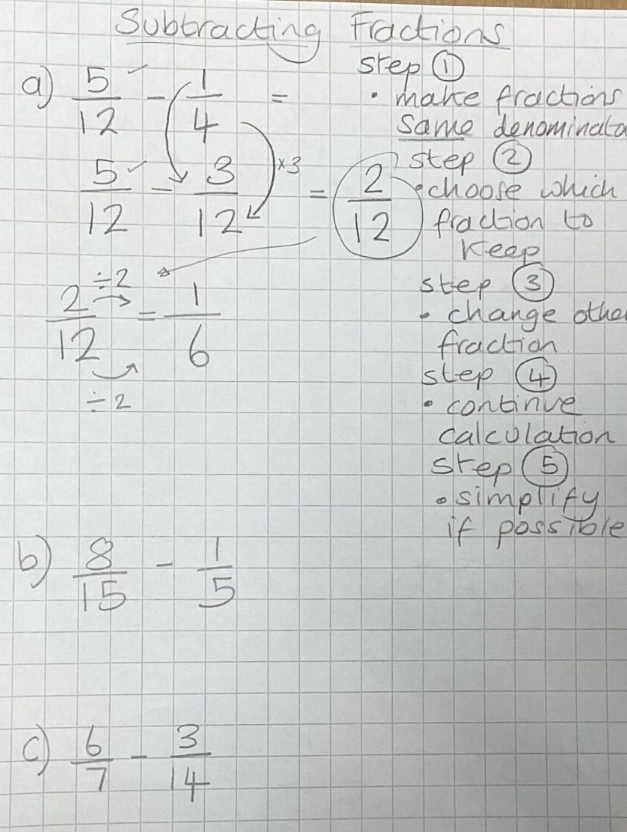 Subtracting Fractions
a) 5/12 - 1/4 =
5/12 - 3/12 = 2/12
×3
÷2
2/12 = 1/6
÷2
step ①
• make fractions
same denominato
step ②
• choose which
fraction to
keep
step ③
• change othe
fraction
step ④
• continue
calculation
step ⑤
• simplify
if possible
b) 8/15 - 1/5
c) 6/7 - 3/14